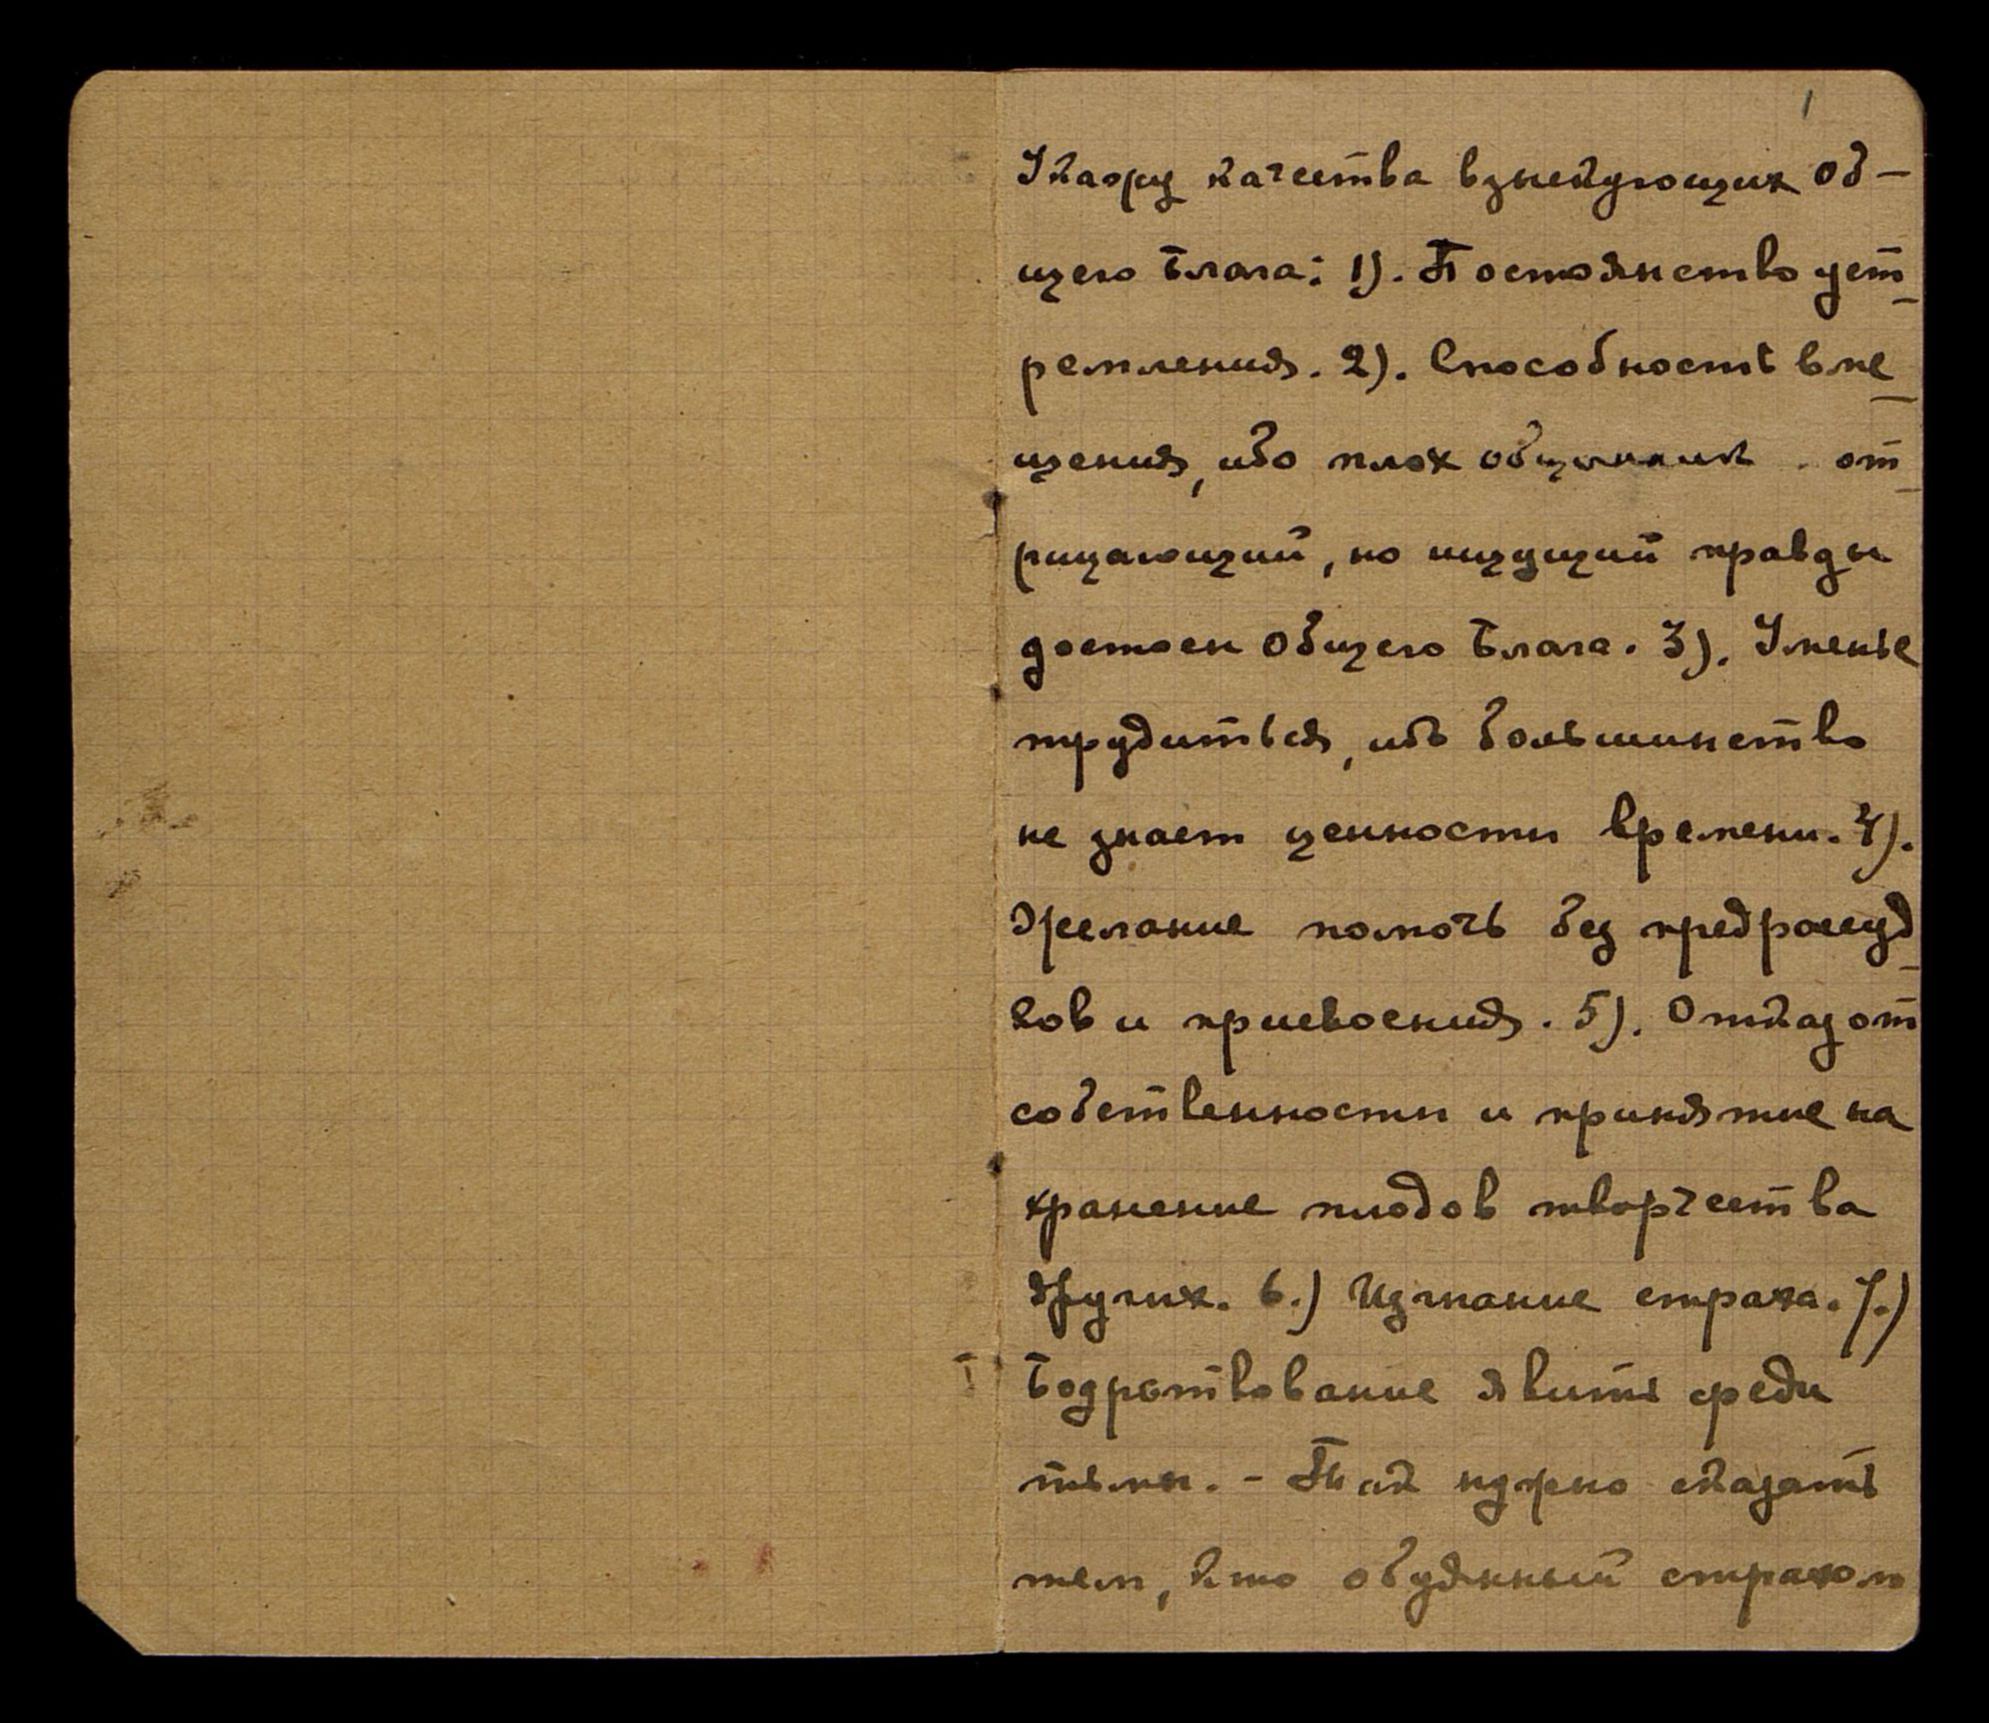 1
Укажу качества взыскующих об-
щего Блага: 1). Постоянство уст-
ремления. 2). Способность вме-
щения, ибо плох общинник от-
рицающий, но ищущий правды
достоен общего Блага. 3). Уменье
трудиться, ибо большинство
не знает ценности времени. 4).
Желание помочь без предрассуд-
ков и присвоения. 5). Отказ от
собственности и принятие на
хранение плодов творчества
других. 6.) Изгнание страха. 7.)
Бодрствование явить среди
тьмы. - Так нужно сказать
тем, кто обуянный страхом